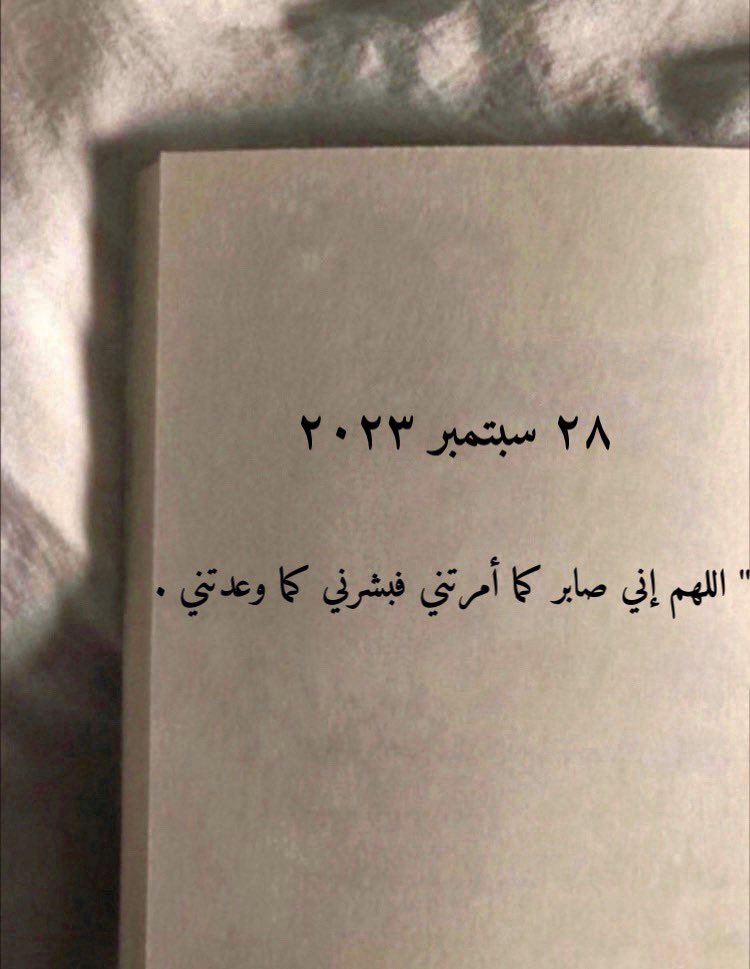 ٢٨ سبتمبر ٢٠٢٣
" اللهم إني صابر كما أمرتني فبشرني كما وعدتني .